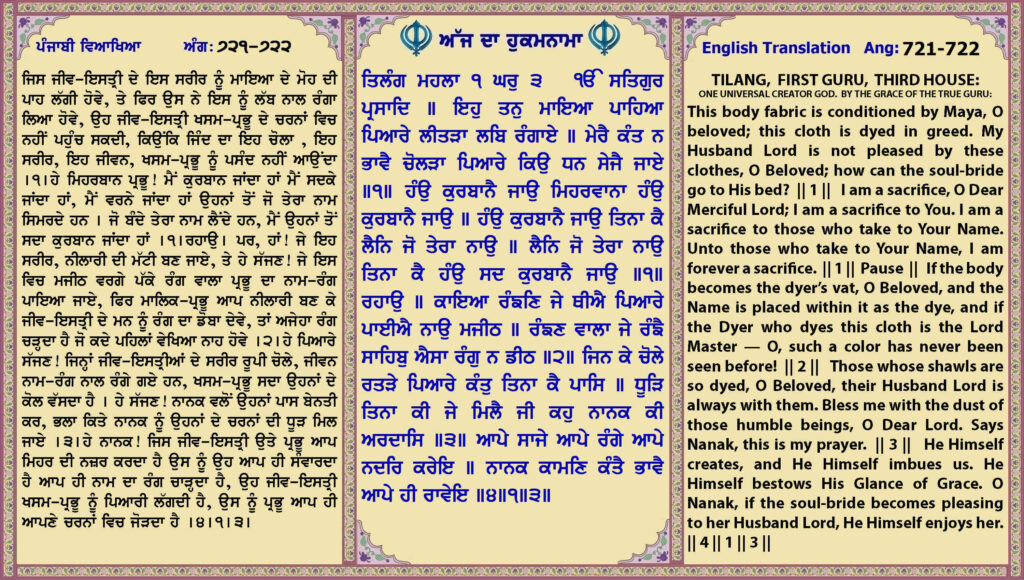 ਪੰਜਾਬੀ ਵਿਆਖਿਆ ਅੰਗ: ੭੨੧-੭੨੨
ਜਿਸ ਜੀਵ-ਇਸਤ੍ਰੀ ਦੇ ਇਸ ਸਰੀਰ ਨੂੰ ਮਾਇਆ ਦੇ ਮੋਹ ਦੀ
ਪਾਹ ਲੱਗੀ ਹੋਵੇ, ਤੇ ਫਿਰ ਉਸ ਨੇ ਇਸ ਨੂੰ ਲੱਬ ਨਾਲ ਰੰਗਾ
ਲਿਆ ਹੋਵੇ, ਉਹ ਜੀਵ-ਇਸਤ੍ਰੀ ਖਸਮ-ਪ੍ਰਭੂ ਦੇ ਚਰਨਾਂ ਵਿਚ
ਨਹੀਂ ਪਹੁੰਚ ਸਕਦੀ, ਕਿਉਂਕਿ ਜਿੰਦ ਦਾ ਇਹ ਚੋਲਾ , ਇਹ
ਸਰੀਰ, ਇਹ ਜੀਵਨ, ਖਸਮ-ਪ੍ਰਭੂ ਨੂੰ ਪਸੰਦ ਨਹੀਂ ਆਉਂਦਾ
।੧।ਹੇ ਮਿਹਰਬਾਨ ਪ੍ਰਭੂ! ਮੈਂ ਕੁਰਬਾਨ ਜਾਂਦਾ ਹਾਂ ਮੈਂ ਸਦਕੇ
ਜਾਂਦਾ ਹਾਂ, ਮੈਂ ਵਰਨੇ ਜਾਂਦਾ ਹਾਂ ਉਹਨਾਂ ਤੋਂ ਜੋ ਤੇਰਾ ਨਾਮ
ਸਿਮਰਦੇ ਹਨ । ਜੋ ਬੰਦੇ ਤੇਰਾ ਨਾਮ ਲੈਂਦੇ ਹਨ, ਮੈਂ ਉਹਨਾਂ ਤੋਂ
ਸਦਾ ਕੁਰਬਾਨ ਜਾਂਦਾ ਹਾਂ ।੧।ਰਹਾਉ। ਪਰ, ਹਾਂ! ਜੇ ਇਹ
ਸਰੀਰ, ਨੀਲਾਰੀ ਦੀ ਮੱਟੀ ਬਣ ਜਾਏ, ਤੇ ਹੇ ਸੱਜਣ! ਜੇ ਇਸ
ਵਿਚ ਮਜੀਠ ਵਰਗੇ ਪੱਕੇ ਰੰਗ ਵਾਲਾ ਪ੍ਰਭੂ ਦਾ ਨਾਮ-ਰੰਗ
ਪਾਇਆ ਜਾਏ, ਫਿਰ ਮਾਲਿਕ-ਪ੍ਰਭੂ ਆਪ ਨੀਲਾਰੀ ਬਣ ਕੇ
ਜੀਵ-ਇਸਤ੍ਰੀ ਦੇ ਮਨ ਨੂੰ ਰੰਗ ਦਾ ਡੋਬਾ ਦੇਵੇ, ਤਾਂ ਅਜੇਹਾ ਰੰਗ
ਚੜ੍ਹਦਾ ਹੈ ਜੋ ਕਦੇ ਪਹਿਲਾਂ ਵੇਖਿਆ ਨਾਹ ਹੋਵੇ ।੨।ਹੇ ਪਿਆਰੇ
ਸੱਜਣ! ਜਿਨ੍ਹਾਂ ਜੀਵ-ਇਸਤ੍ਰੀਆਂ ਦੇ ਸਰੀਰ ਰੂਪੀ ਚੋਲੇ, ਜੀਵਨ
ਨਾਮ-ਰੰਗ ਨਾਲ ਰੰਗੇ ਗਏ ਹਨ, ਖਸਮ-ਪ੍ਰਭੂ ਸਦਾ ਉਹਨਾਂ ਦੇ
ਕੋਲ ਵੱਸਦਾ ਹੈ । ਹੇ ਸੱਜਣ! ਨਾਨਕ ਵਲੋਂ ਉਹਨਾਂ ਪਾਸ ਬੇਨਤੀ
ਕਰ, ਭਲਾ ਕਿਤੇ ਨਾਨਕ ਨੂੰ ਉਹਨਾਂ ਦੇ ਚਰਨਾਂ ਦੀ ਧੂੜ ਮਿਲ
ਜਾਏ ।੩।ਹੇ ਨਾਨਕ! ਜਿਸ ਜੀਵ-ਇਸਤ੍ਰੀ ਉਤੇ ਪ੍ਰਭੂ ਆਪ
ਮਿਹਰ ਦੀ ਨਜ਼ਰ ਕਰਦਾ ਹੈ ਉਸ ਨੂੰ ਉਹ ਆਪ ਹੀ ਸੰਵਾਰਦਾ
ਹੈ ਆਪ ਹੀ ਨਾਮ ਦਾ ਰੰਗ ਚਾੜ੍ਹਦਾ ਹੈ, ਉਹ ਜੀਵ-ਇਸਤ੍ਰੀ
ਖਸਮ-ਪ੍ਰਭੂ ਨੂੰ ਪਿਆਰੀ ਲੱਗਦੀ ਹੈ, ਉਸ ਨੂੰ ਪ੍ਰਭੂ ਆਪ ਹੀ
ਆਪਣੇ ਚਰਨਾਂ ਵਿਚ ਜੋੜਦਾ ਹੈ ।੪।੧।੩।
ਅੱਜ ਦਾ ਹੁਕਮਨਾਮਾ
ਤਿਲੰਗ ਮਹਲਾ ੧ ਘਰੁ ੩ ੴ ਸਤਿਗੁਰ
ਪ੍ਰਸਾਦਿ ॥ ਇਹੁ ਤਨੁ ਮਾਇਆ ਪਾਹਿਆ
ਪਿਆਰੇ ਲੀਤੜਾ ਲਬਿ ਰੰਗਾਏ ॥ ਮੇਰੈ ਕੰਤ ਨ
ਭਾਵੈ ਚੋਲੜਾ ਪਿਆਰੇ ਕਿਉ ਧਨ ਸੇਜੈ ਜਾਏ
॥੧॥ ਹੰਉ ਕੁਰਬਾਨੈ ਜਾਉ ਮਿਹਰਵਾਨਾ ਹੰਉ
ਕੁਰਬਾਨੈ ਜਾਉ ॥ ਹੰਉ ਕੁਰਬਾਨੈ ਜਾਉ ਤਿਨਾ ਕੈ
ਲੈਨਿ ਜੋ ਤੇਰਾ ਨਾਉ ॥ ਲੈਨਿ ਜੋ ਤੇਰਾ ਨਾਉ
ਤਿਨਾ ਕੈ ਹੰਉ ਸਦ ਕੁਰਬਾਨੈ ਜਾਉ ॥੧॥
ਰਹਾਉ ॥ ਕਾਇਆ ਰੰਙਣਿ ਜੇ ਥੀਐ ਪਿਆਰੇ
ਪਾਈਐ ਨਾਉ ਮਜੀਠ ॥ ਰੰਙਣ ਵਾਲਾ ਜੇ ਰੰਙੈ
ਸਾਹਿਬੁ ਐਸਾ ਰੰਗੁ ਨ ਡੀਠ ॥੨॥ ਜਿਨ ਕੇ ਚੋਲੇ
ਰਤੜੇ ਪਿਆਰੇ ਕੰਤੁ ਤਿਨਾ ਕੈ ਪਾਸਿ ॥ ਧੂੜਿ
ਤਿਨਾ ਕੀ ਜੇ ਮਿਲੈ ਜੀ ਕਹੁ ਨਾਨਕ ਕੀ
ਅਰਦਾਸਿ ॥੩॥ ਆਪੇ ਸਾਜੇ ਆਪੇ ਰੰਗੇ ਆਪੇ
ਨਦਰਿ ਕਰੇਇ ॥ ਨਾਨਕ ਕਾਮਣਿ ਕੰਤੈ ਭਾਵੈ
ਆਪੇ ਹੀ ਰਾਵੇਇ ॥੪॥੧॥੩॥
English Translation Ang: 721-722
TILANG, FIRST GURU, THIRD HOUSE:
ONE UNIVERSAL CREATOR GOD. BY THE GRACE OF THE TRUE GURU:
This body fabric is conditioned by Maya, O
beloved; this cloth is dyed in greed. My
Husband Lord is not pleased by these
clothes, O Beloved; how can the soul-bride
go to His bed? || 1 || I am a sacrifice, O Dear
Merciful Lord; I am a sacrifice to You. I am a
sacrifice to those who take to Your Name.
Unto those who take to Your Name, I am
forever a sacrifice. || 1 || Pause || If the body
becomes the dyer's vat, O Beloved, and the
Name is placed within it as the dye, and if
the Dyer who dyes this cloth is the Lord
Master — O, such a color has never been
seen before! || 2 || Those whose shawls are
so dyed, O Beloved, their Husband Lord is
always with them. Bless me with the dust of
those humble beings, O Dear Lord. Says
Nanak, this is my prayer. || 3 || He Himself
creates, and He Himself imbues us. He
Himself bestows His Glance of Grace. O
Nanak, if the soul-bride becomes pleasing
to her Husband Lord, He Himself enjoys her.
|| 4 || 1 || 3 ||